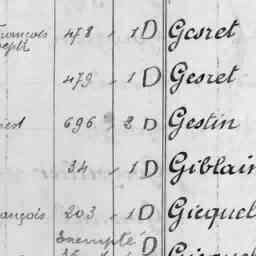 François 478 1 D Gesret
Joseph
479 1 D Gesret
696 2 D Gestin
34 1 D Giblain
ançois 203 1 D Gicquel
Exempté D